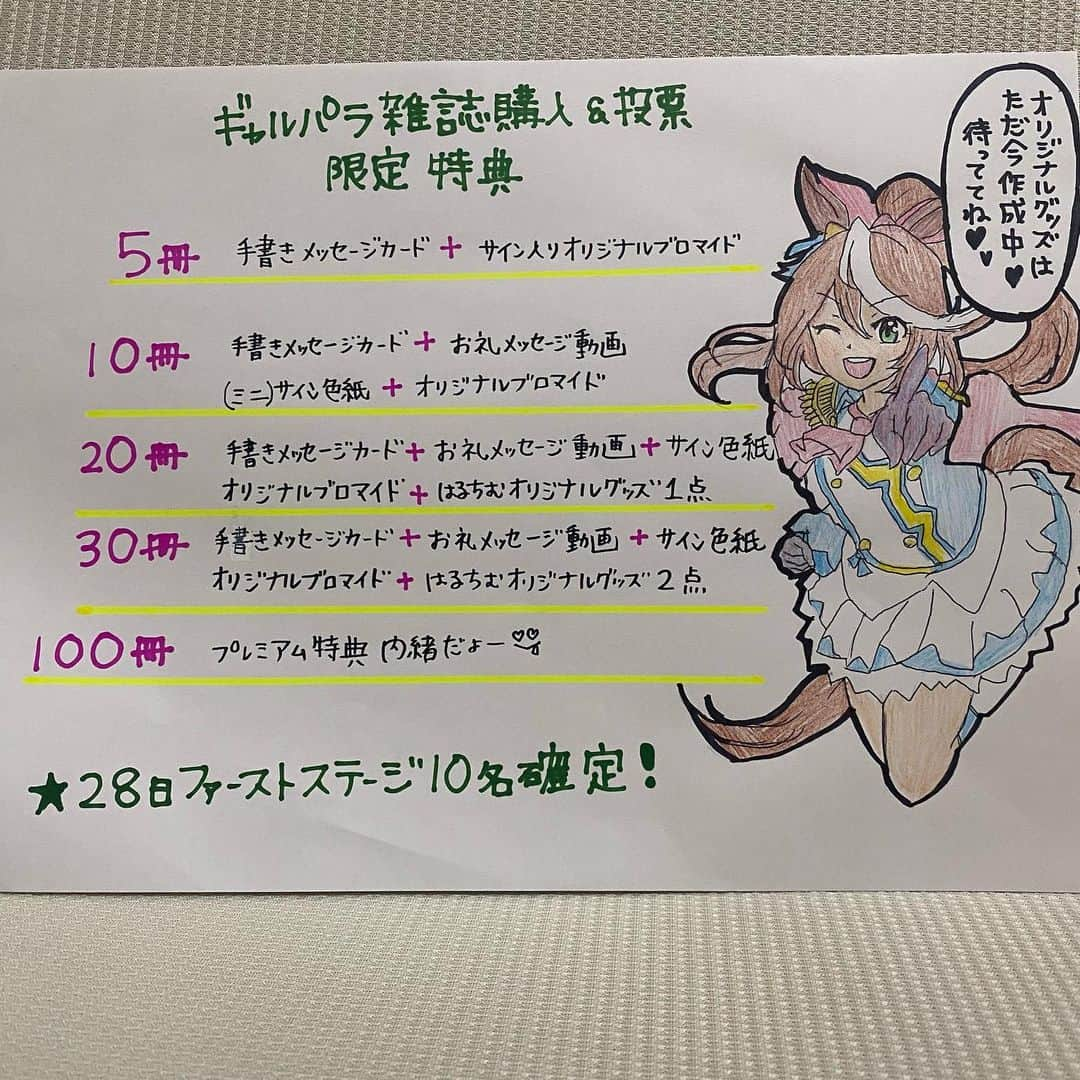 ギャルパラ雑誌購入&投票
限定 特典
5冊 手書きメッセージカード + サイン入りオリジナルブロマイド
10冊 手書きメッセージカード + お礼メッセージ動画
(ミニ)サイン色紙 + オリジナルブロマイド
20冊 手書きメッセージカード+お礼メッセージ動画+サイン色紙
オリジナルブロマイド+はるちむオリジナルグッズ1点
30冊 手書きメッセージカード+お礼メッセージ動画+サイン色紙
オリジナルブロマイド+はるちむオリジナルグッズ2点
100冊 プレミアム特典 内緒だよー
★28日ファーストステージ10名確定!
オリジナルグッズは
ただ今作成中♥
待っててね♥♥